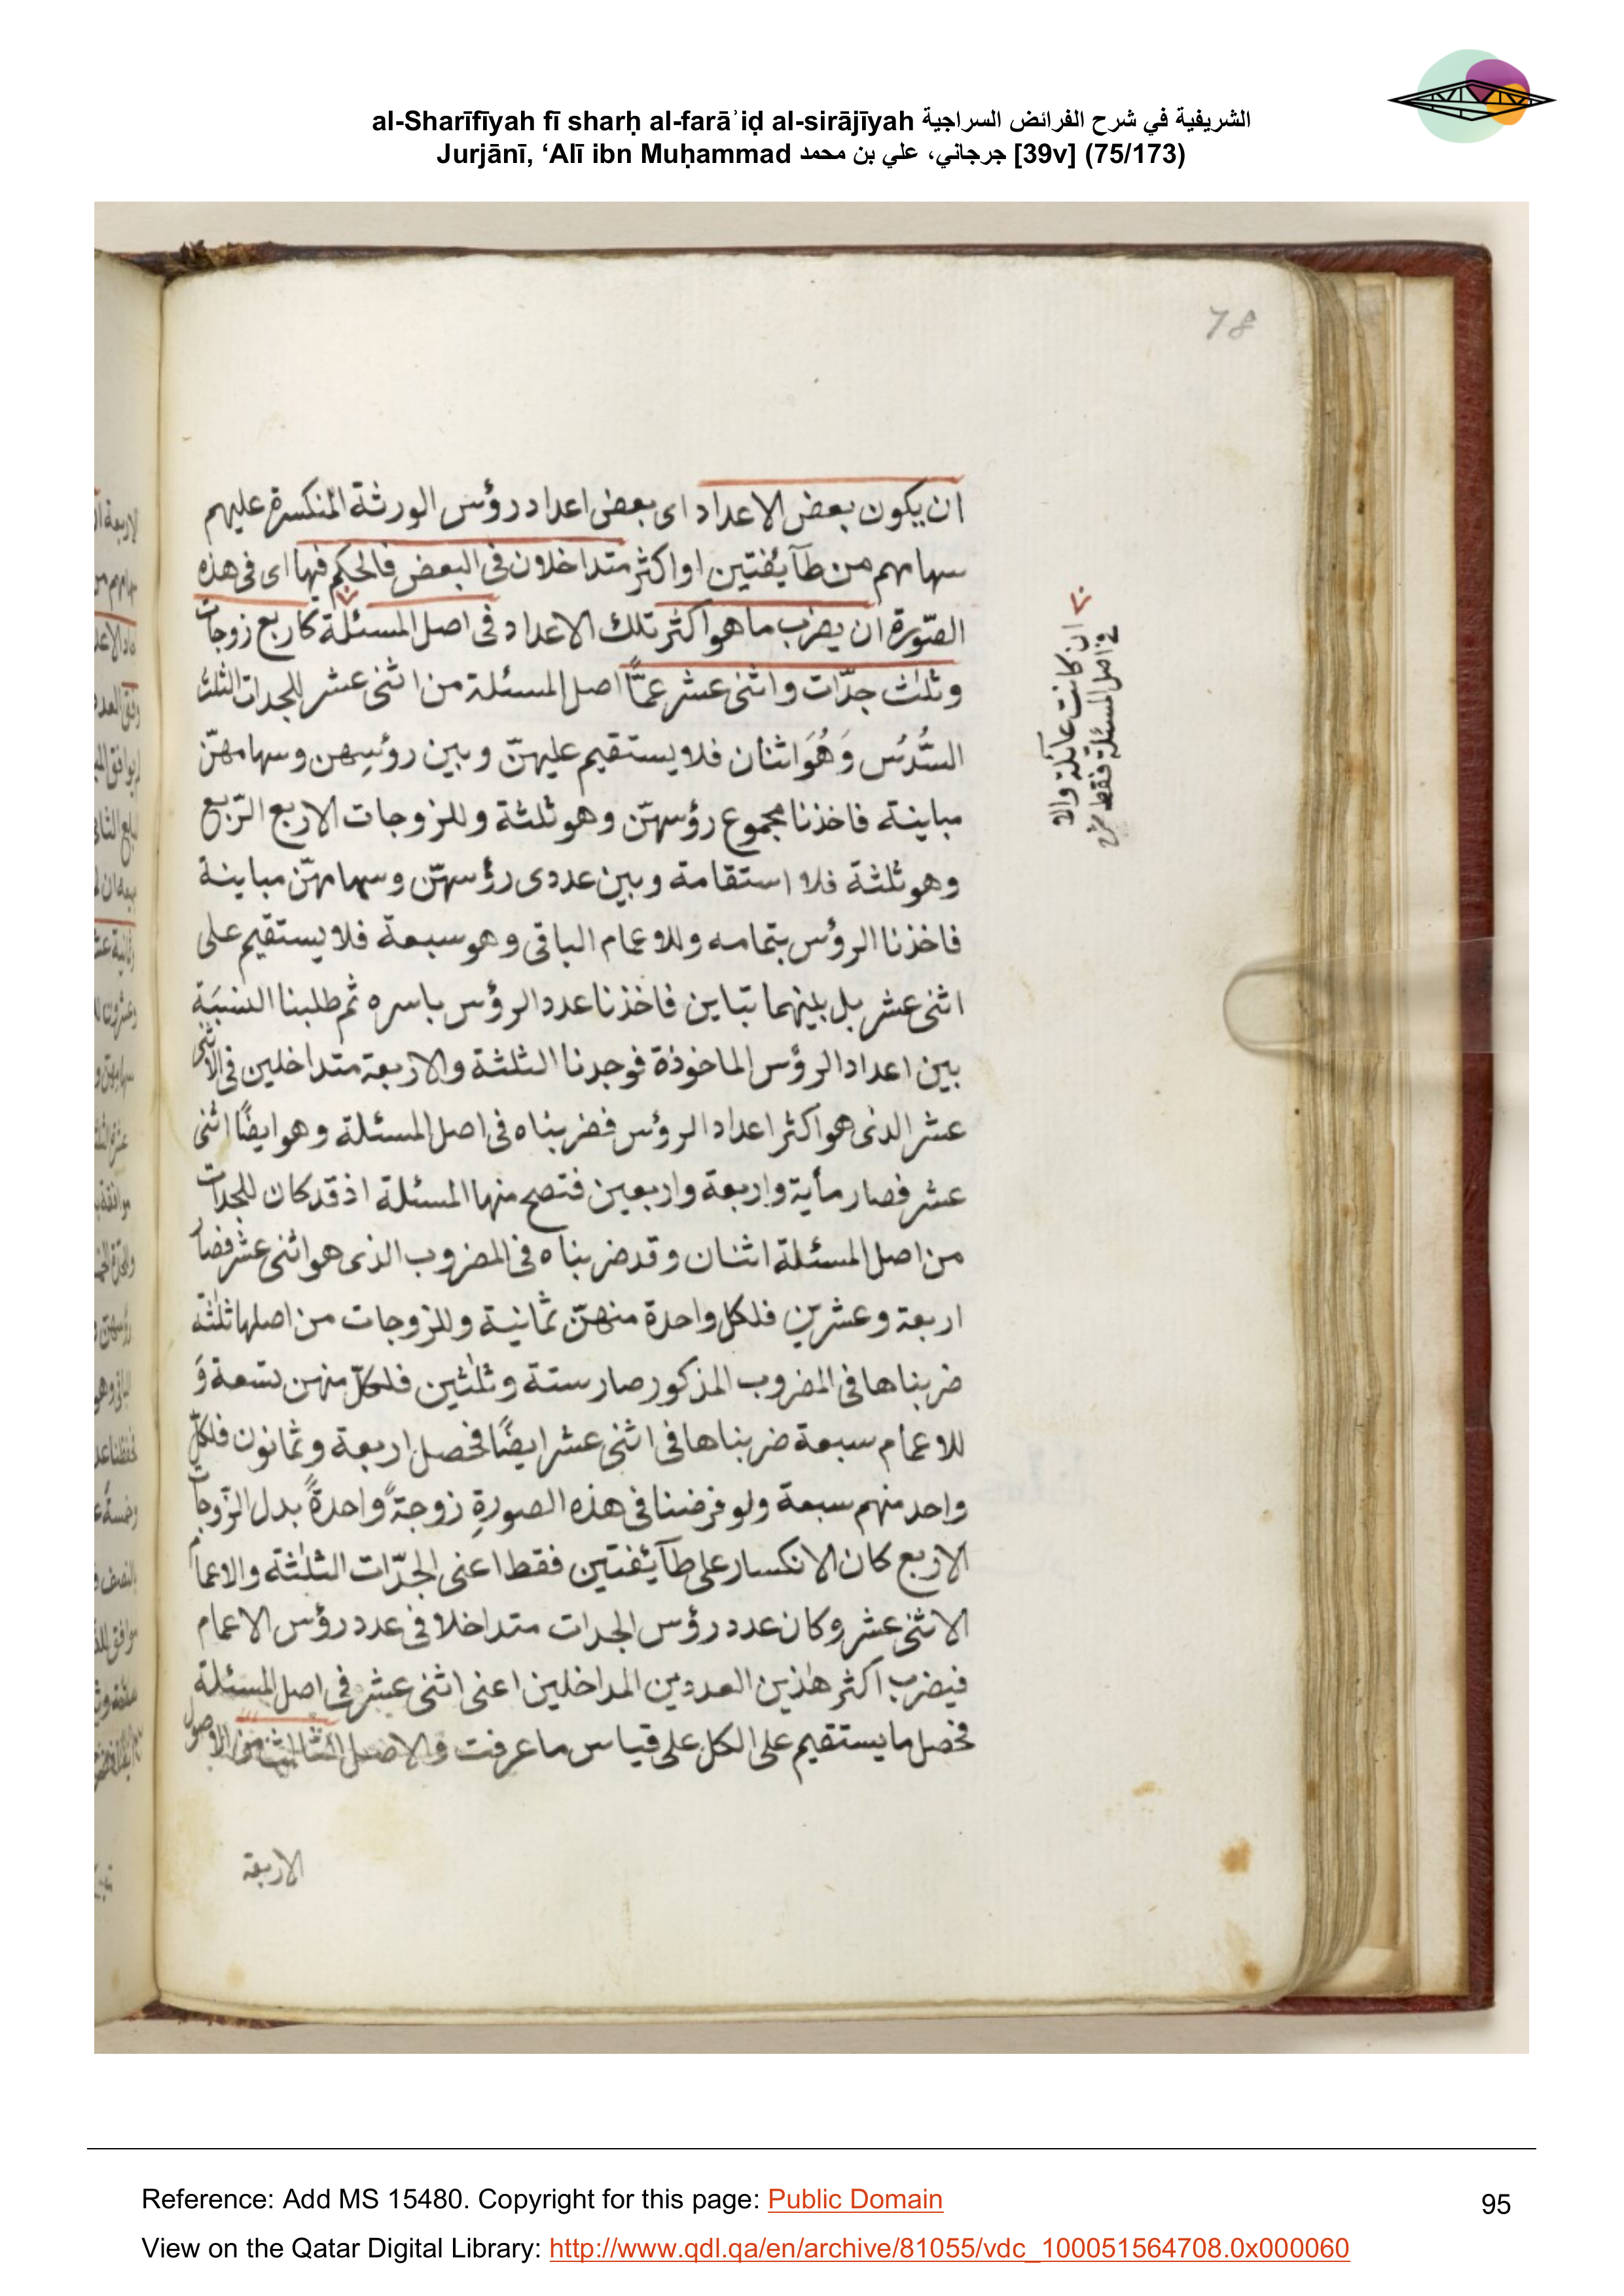 al-Sharīfīyah fī sharḥ al-farāʾiḍ al-sirājīyah الشريفية في شرح الفرائض السراجية
Jurjānī, ‘Alī ibn Muḥammad جرجاني، علي بن محمد [39v] (75/173)
78
ان يكون بعض الاعداد اى بعض اعداد رؤس الورثة المنكسرة عليهم
سهامهم من طآئفتين او اكثر متداخلان فى البعض فالحكم فيها اى فى هذه
الصّورة ان يضرب ما هو اكثر تلك الاعداد فى اصل المسئلة كاربع زوجات
وثلث جدّات واثنى عشر عمًّا اصل المسئلة من اثنى عشر للجدات الثلث
السُّدُس وَهُوَ اثنان فلا يستقيم عليهنّ وبين رؤسِهن وسهامهنّ
مباينة فاخذنا مجموع رؤسهنّ وهو ثلثة وللزوجات الاربع الرّبع
وهو ثلثة فلا استقامة وبين عددى رؤسهنّ وسهامهنّ مباينة
فاخذنا الرؤس بتمامه وللاعمام الباقى وهو سبعة فلا يستقيم على
اثنى عشر بل بينهما تباين فاخذنا عدد الرؤس باسره ثم طلبنا النسبَة
بين اعداد الرؤس الماخوذة فوجدنا الثلثة والاربعة متداخلين فى الاثنى
عشر الذى هو اكثر اعداد الرؤس فضربناه فى اصل المسئلة وهو ايضًا اثنى
عشر فصار مأية واربعة واربعين فتصح منها المسئلة اذ قد كان للجدات
من اصل المسئلة اثنان وقد ضربناه فى المضروب الذى هو اثنى عشر فصار
اربعة وعشرين فلكل واحدة منهنّ ثمانية وللزوجات من اصلها ثلثة
ضربناها فى المضروب المذكور صار ستة وثلثين فلكلّ منهن تسعة وَ
للاعمام سبعة ضربناها فى اثنى عشر ايضًا فحصل اربعة وثمانون فلكلّ
واحد منهم سبعة ولو فرضنا فى هذه الصورةِ زوجةً واحدةً بدل الزّوجات
الاربع كان الانكسار على طآئفتين فقط اعنى الجدّات الثلثة والاعمام
الاثنى عشر وكان عدد رؤس الجدات متداخلا فى عدد رؤس الاعمام
فيضرب اكثر هٰذين العددين المداخلين اعنى اثنى عشر فى اصل المسئلة
فحصل ما يستقيم على الكل على قياس ما عرفت والاصل الثالث من الاصول
الاربعة
ان كانت عآئلة والا
فى اصل المسئلة فقط
Reference: Add MS 15480. Copyright for this page: Public Domain
95
View on the Qatar Digital Library: http://www.qdl.qa/en/archive/81055/vdc_100051564708.0x000060